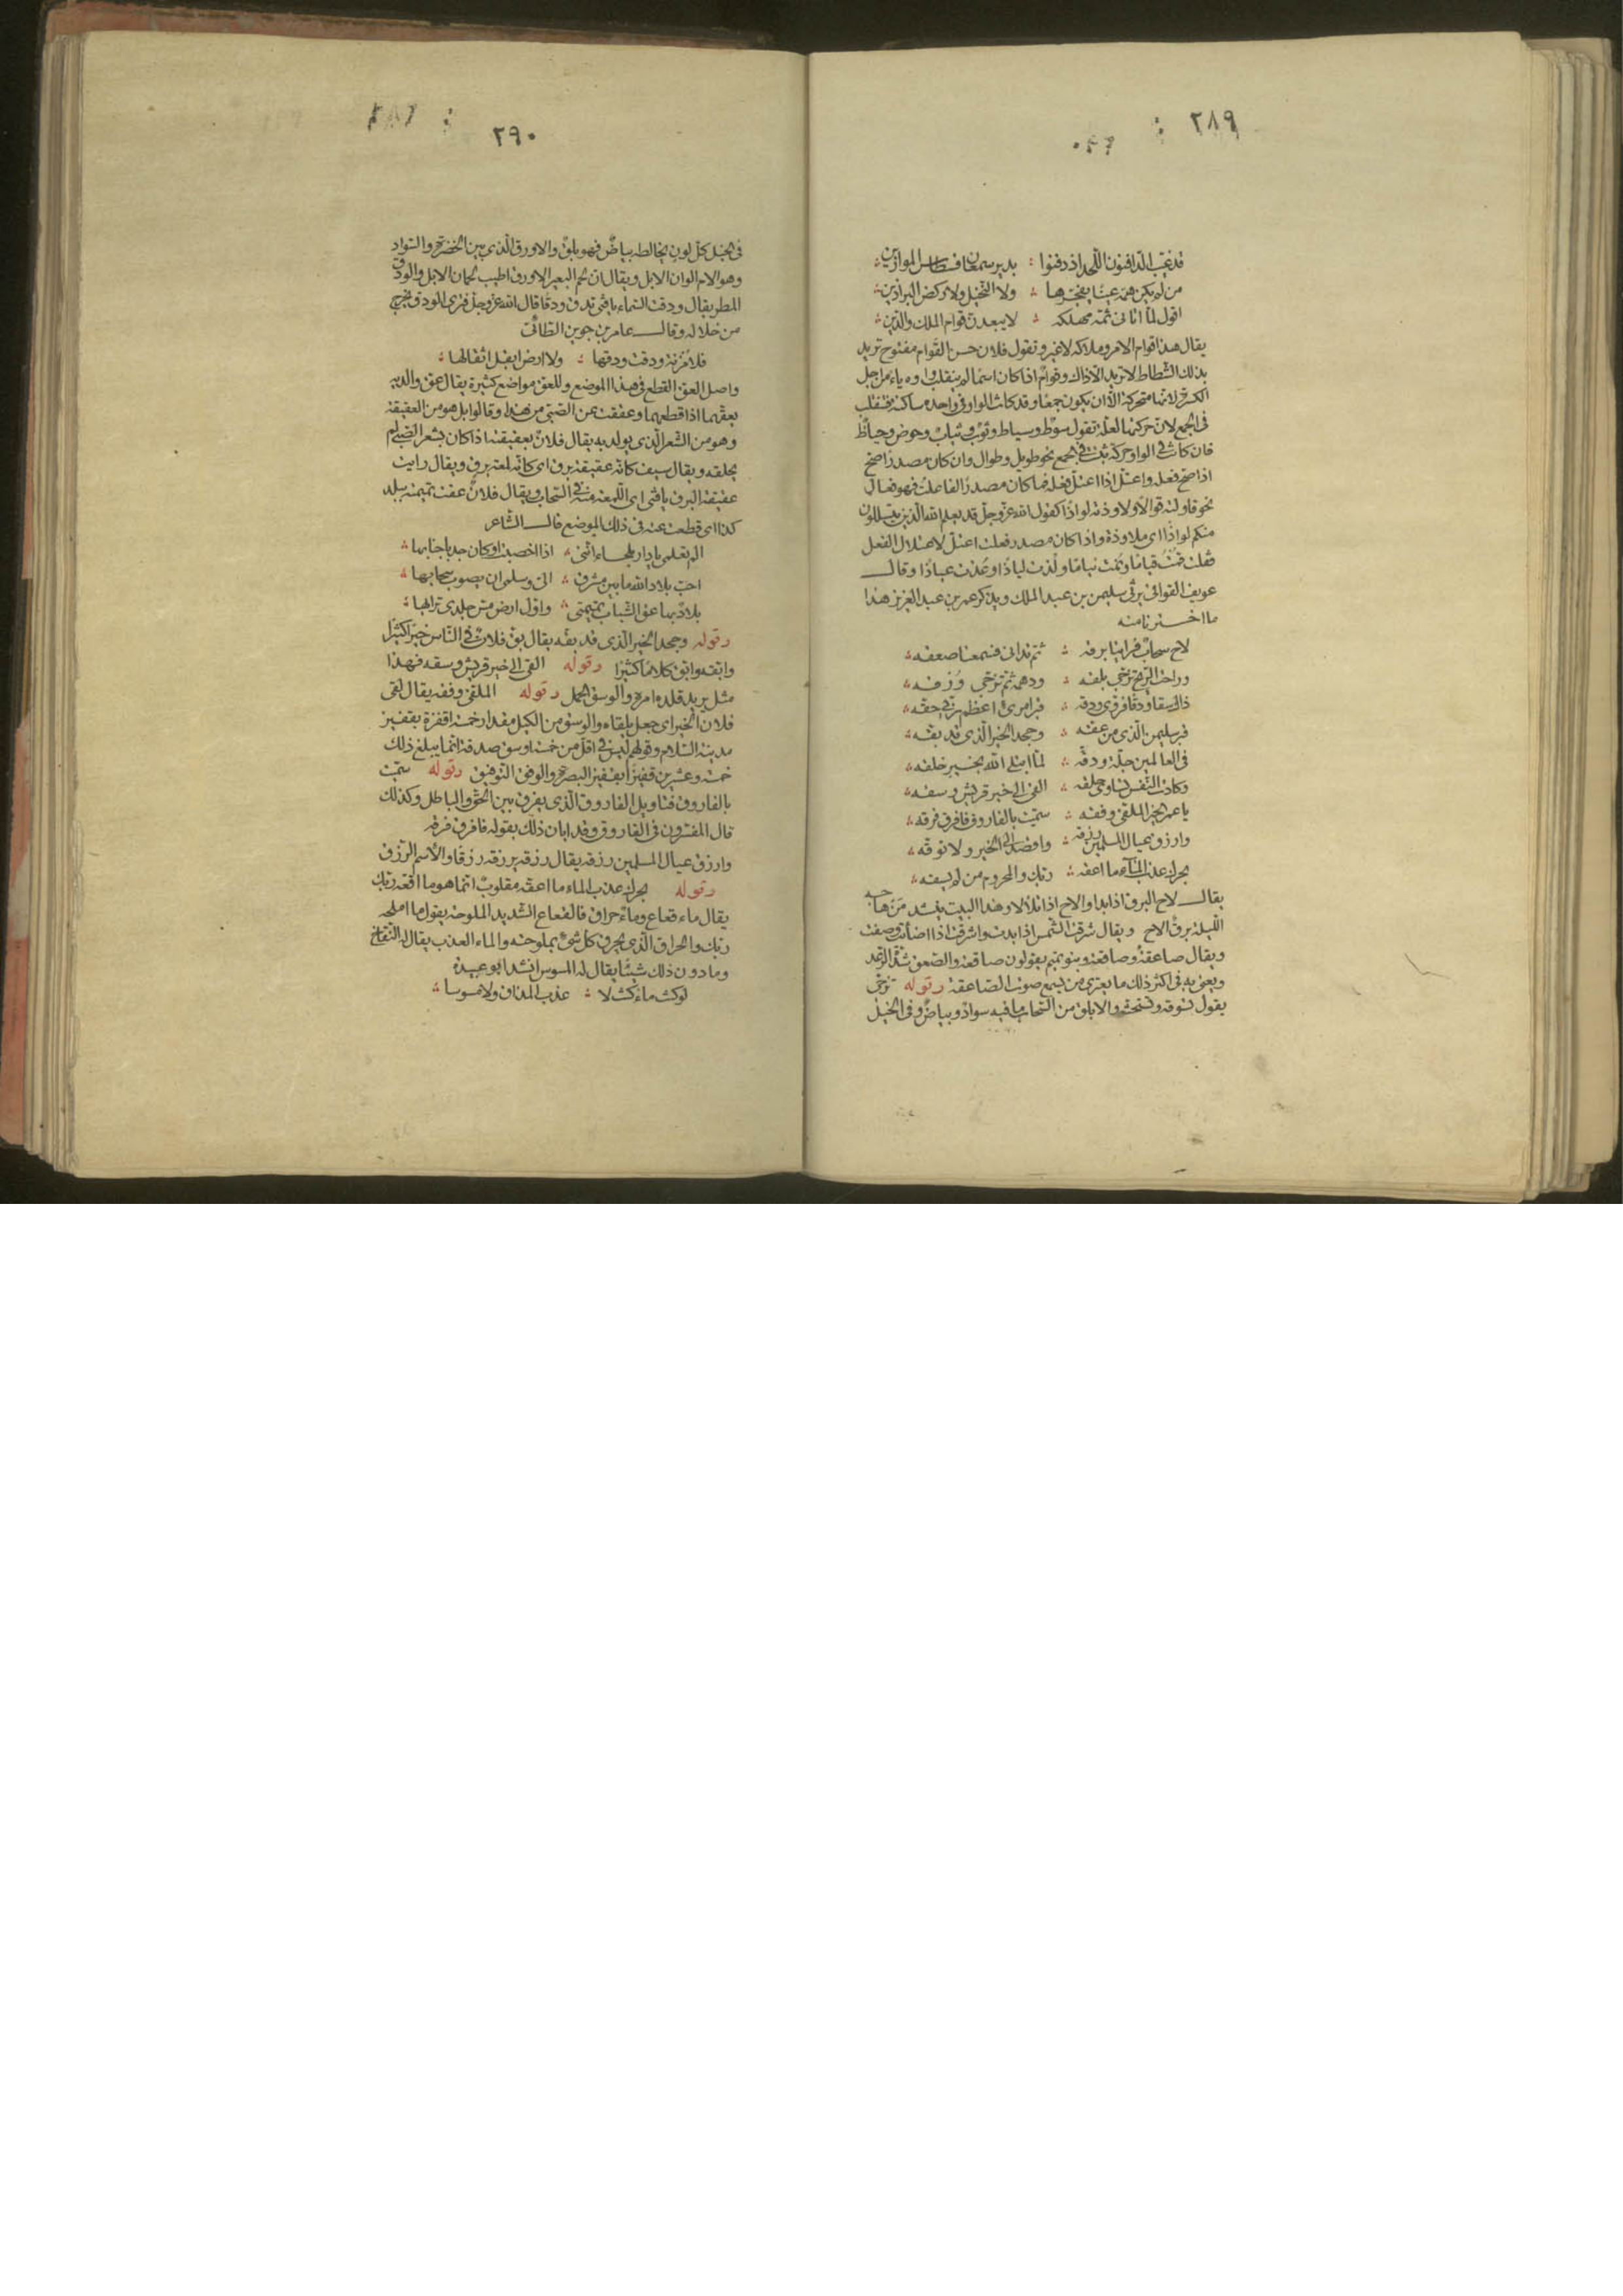 ٢٨٩
قد غيّب الدافنون اللّحد اذ دفنوا ؛ بدير سمعان قسطاس الموازين
من لم يكن همّه عينا يفجّرها ؛ ولا النخيل ولا ركض البراذين
اقول لما اتانى ثمّ مهلكه ؛ لا يبعدنّ قوام الملك والدّين
يقال هذا قوام الامر وملاكه لا غير وتقول فلان حسن القَوام مفتوح تريد
بذلك الشطاط لا تريد الّا ذاك وقِوام اذا كان اسما لم ينقلب واوه ياء من اجل
الكسرة لانها متحركة الّا ان يكون جمعًا وقد كانت الواو فى واحده ساكنة فتنقلب
فى الجمع لان حركتها لعلّة تقول سوط وسياط وثوب وثياب وحوض وحياض
فان كانت فى الواو حركة ثبتت فى الجمع نحو طويل وطوال وان كان مصدرًا صحّ
اذا صحّ فعله واعتلّ اذا اعتلّ فعله فما كان مصدرًا لفاعلت فهو فعال
نحو قاولته قوالًا ولاوذته لواذًا كقول الله عزّ وجلّ قد يعلم الله الّذين يتسللون
منكم لواذًا اى ملاوذة واذا كان مصدر فعلت اعتلّ لاعتلال الفعل
فقلت قمت قيامًا ونمت نيامًا ولُذت لياذًا وعُذت عياذًا وقال
عويف القوافى يرثى سليمن بن عبد الملك ويذكر عمر بن عبد العزيز هذا
ما اخترنا منه
لاح سحاب فراينا برقه ؛ ثمّ تدانى فسمعنا صعقه
وراحت الرّيح تزجّى بلقه ؛ ودهمه ثمّ تزجّى وُرْقه
ذاك سقا ودقًا فروّى ودقه ؛ قبر امرئ اعظم ربّى حقّه
قبر سليمن الّذى من عقّه ؛ وجحد الخير الّذى قد بقّه
فى العالمين جلّه ودقّه ؛ لمّا ابتلى الله بخير خلقه
وكادت النّفس تساوى حلقه ؛ القى الى خير قريش وسقه
يا عمر الخير الملقّى وفقه ؛ سمّيت بالفاروق فافرق فرقه
وارزق عيال المسلمين رزقه ؛ واقصد الى الخير ولا توقّه
بحرك عذب الماء ما اعقّه ؛ ربّك والمحروم من لم يسقه
يقال لاح البرق اذا بدا والاح اذا تلألأ وهذا البيت ينشد مَن هاجه
اللّيلة برق الاح ويقال شرقت الشّمس اذا بدت واشرقت اذا اضأت وصفت
ويقال صاعقة وصاقعة وبنو تميم يقولون صاقعة والصّعق شدّة الرّعد
ويعنى به فى اكثر ذلك ما يعترى من يسمع صوت الصّاعقة وقوله تزجّى
يقول تسوقه وتستحثّه والابلق من السّحاب ما فيه سواد وبياض وفى الخيل
٢٩٠
فى الخيل كلّ لون يخالطه بياض فهو بلق والاورق الّذى بين الخضرة والسّواد
وهو الام الوان الابل ويقال انّ لحم البعير الاورق اطيب لحمان الابل والودق
المطر يقال ودقت السّماء يا فتى تدق ودقًا قال الله عزّ وجلّ فترى الودق يخرج
من خلاله وقال عامر بن جوين الطّائى
فلا مزنة ودقت ودقها ؛ ولا ارض ابقل ابقالها
واصل العقّ القطع فى هذا الموضع وللعقّ مواضع كثيرة يقال عقّ والديه
يعقّهما اذا قطعهما وعققت عن الصّبى من هذا وقالوا بل هو من العقيقة
وهو من الشّعر الّذى يولد به يقال فلان بعقيقته اذا كان بشعر الصّبى لم
يحلقه ويقال سيف كانّه عقيقة برق اى كانّه لمعة برق ويقال رايت
عقيقة البرق يا فتى اى اللّمعة منه فى السّحاب ويقال فلان عقّت تميمته ببلد
كذا اى قطعت عنه فى ذلك الموضع قال الشّاعر
الم تعلمى يا دار بلجاء انّنى ؛ اذا اخصبت او كان جدبا جنابها
احبّ بلاد الله ما بين مشرف ؛ الىّ وسلمى ان يصوب سحابها
بلاد بها عقّ الشّباب تميمتى ؛ واوّل ارض مسّ جلدى ترابها
وقوله وجحد الخير الّذى قد بقّه يقال بقّ فلان فى النّاس خيرًا كثيرًا
وابقّه وابقّ كلامًا كثيرًا وقوله القى الى خير قريش وسقه فهذا
مثل يريد قلده امره والوسق الحمل وقوله الملقّى وفقه يقال لقى
فلان الخير اى جعل يلقاه والوسق من الكيل مقدار خمسة اقفزة بقفيز
مدينة السّلام وقولهم ليس فى اقلّ من خمسة اوسق صدقة انّما يبلغ ذلك
خمسة وعشرين قفيزًا بقفيز البصرة والوفق التّوفيق وقوله سمّيت
بالفاروق فتاويل الفاروق الّذى يفرق بين الحقّ والباطل وكذلك
قال المفسّرون فى الفاروق وقد ابان ذلك بقوله فافرق فرقه
وارزق عيال المسلمين رزقه يقال رزقه يرزقه رزقًا والاسم الرّزق
وقوله بحرك عذب الماء ما اعقّه مقلوب انّما هو ما اقعّه ربّك
يقال ماء قعاع وماء حراق فالقعاع الشّديد الملوحة يقول ما املحه
ربّك والحراق الّذى يحرق كلّ شئ بملوحته والماء العذب يقال له النّقاخ
وما دون ذلك شيئًا يقال له المسوس انشد ابو عبيدة
لو كنت ماء كنت لا ؛ عذب المذاق ولا مسوسا